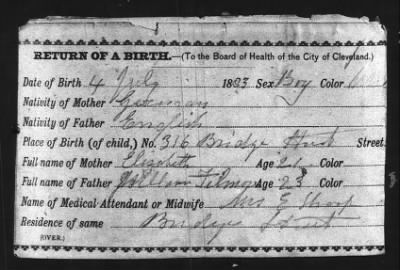 RETURN OF A BIRTH.—(To the Board of Health of the City of Cleveland.)
Date of Birth 4 July 1883 Sex Boy Color
Nativity of Mother German
Nativity of Father English
Place of Birth (of child,) No. 316 Bridge Street.
Full name of Mother Elizabeth Age 21 Color
Full name of Father William Age 23 Color
Name of Medical Attendant or Midwife Mrs E
Residence of same Bridge Street
(OVER.)